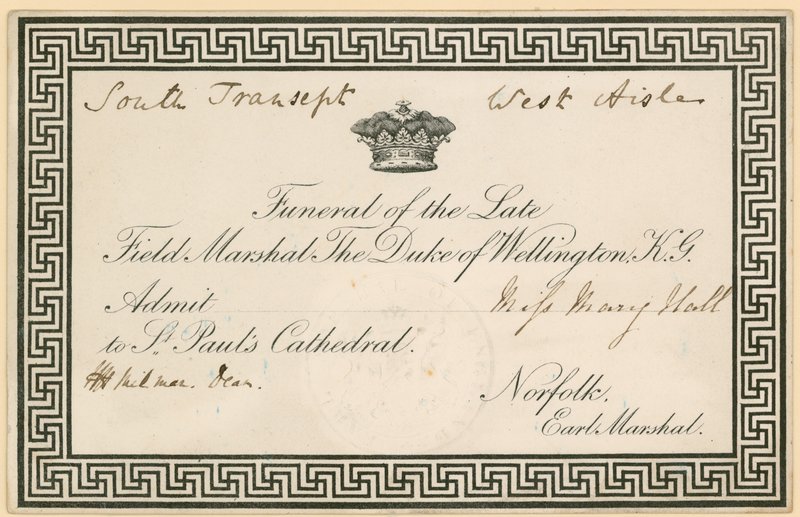 South Transept West Aisle
Funeral of the Late
Field Marshal The Duke of Wellington, K.G.
Admit Miſs Mary Hall
to St. Paul's Cathedral.
HH Milman. Dean.
Norfolk.
Earl Marshal.